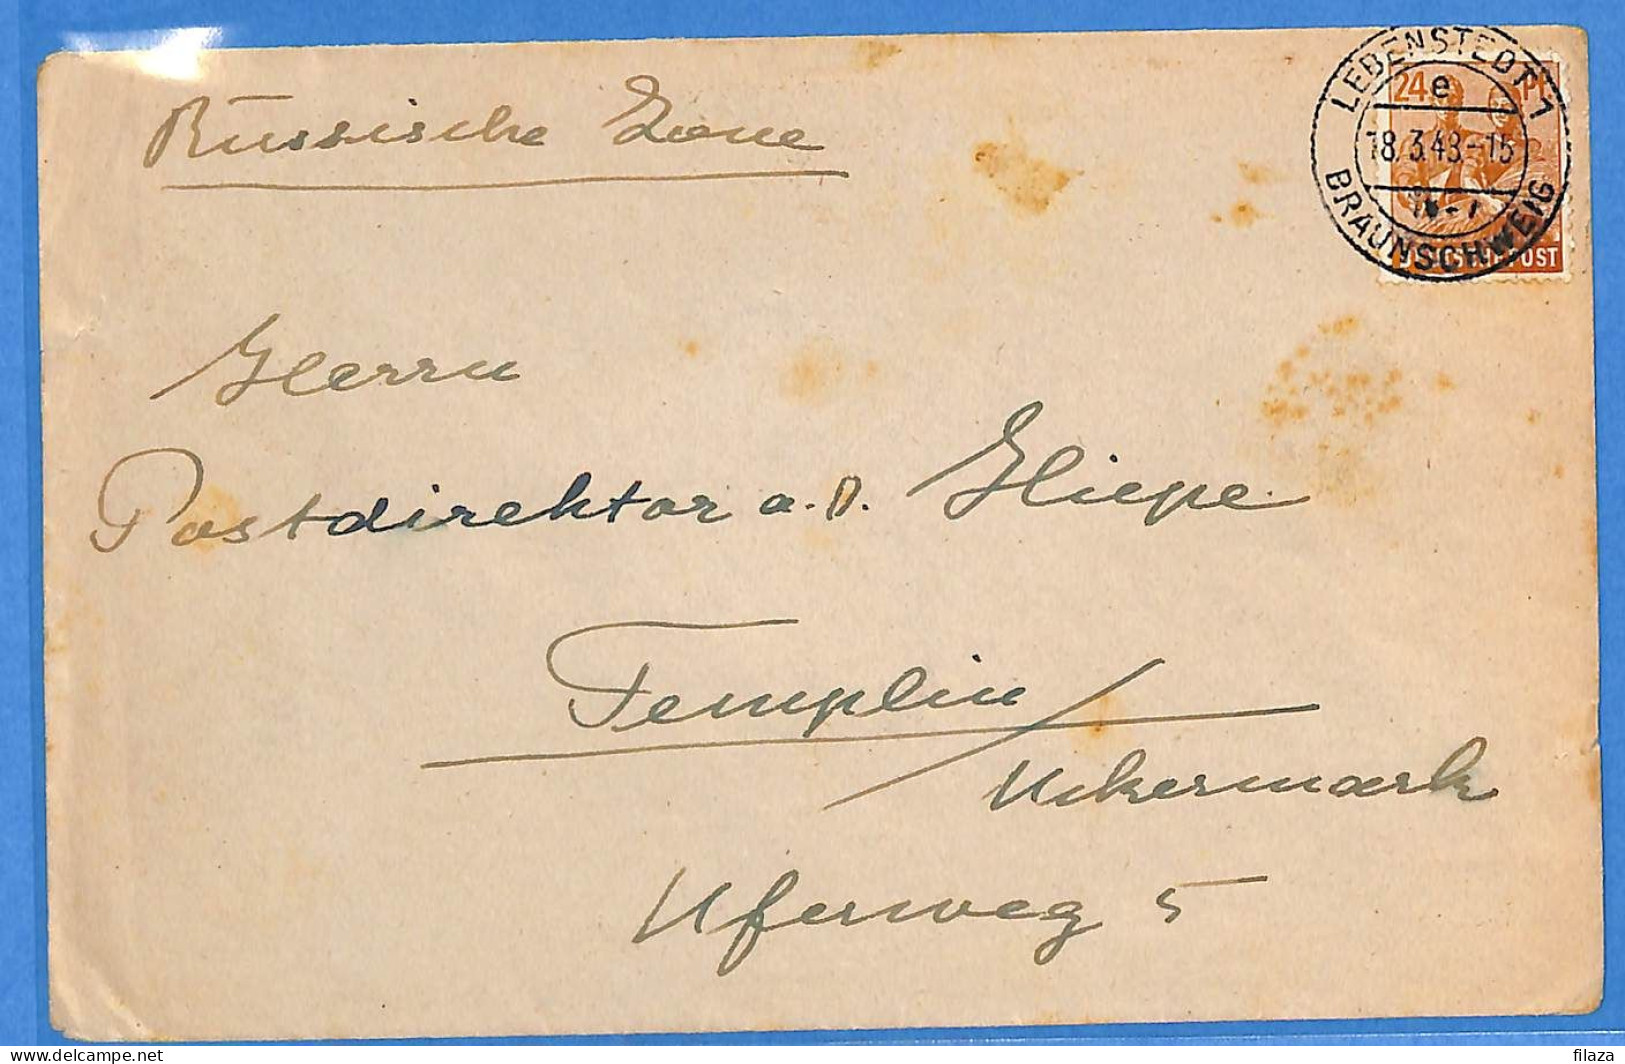 Russische Zone
24 Pf
LEBENSTEDT 1
e
18.3.48.-15
BRAUNSCHWEIG
DEUTSCHE POST
Herrn
Postdirektor a.D. Hiepe
Templin
Uckermark
Uferweg 5
filaza
www.delcampe.net